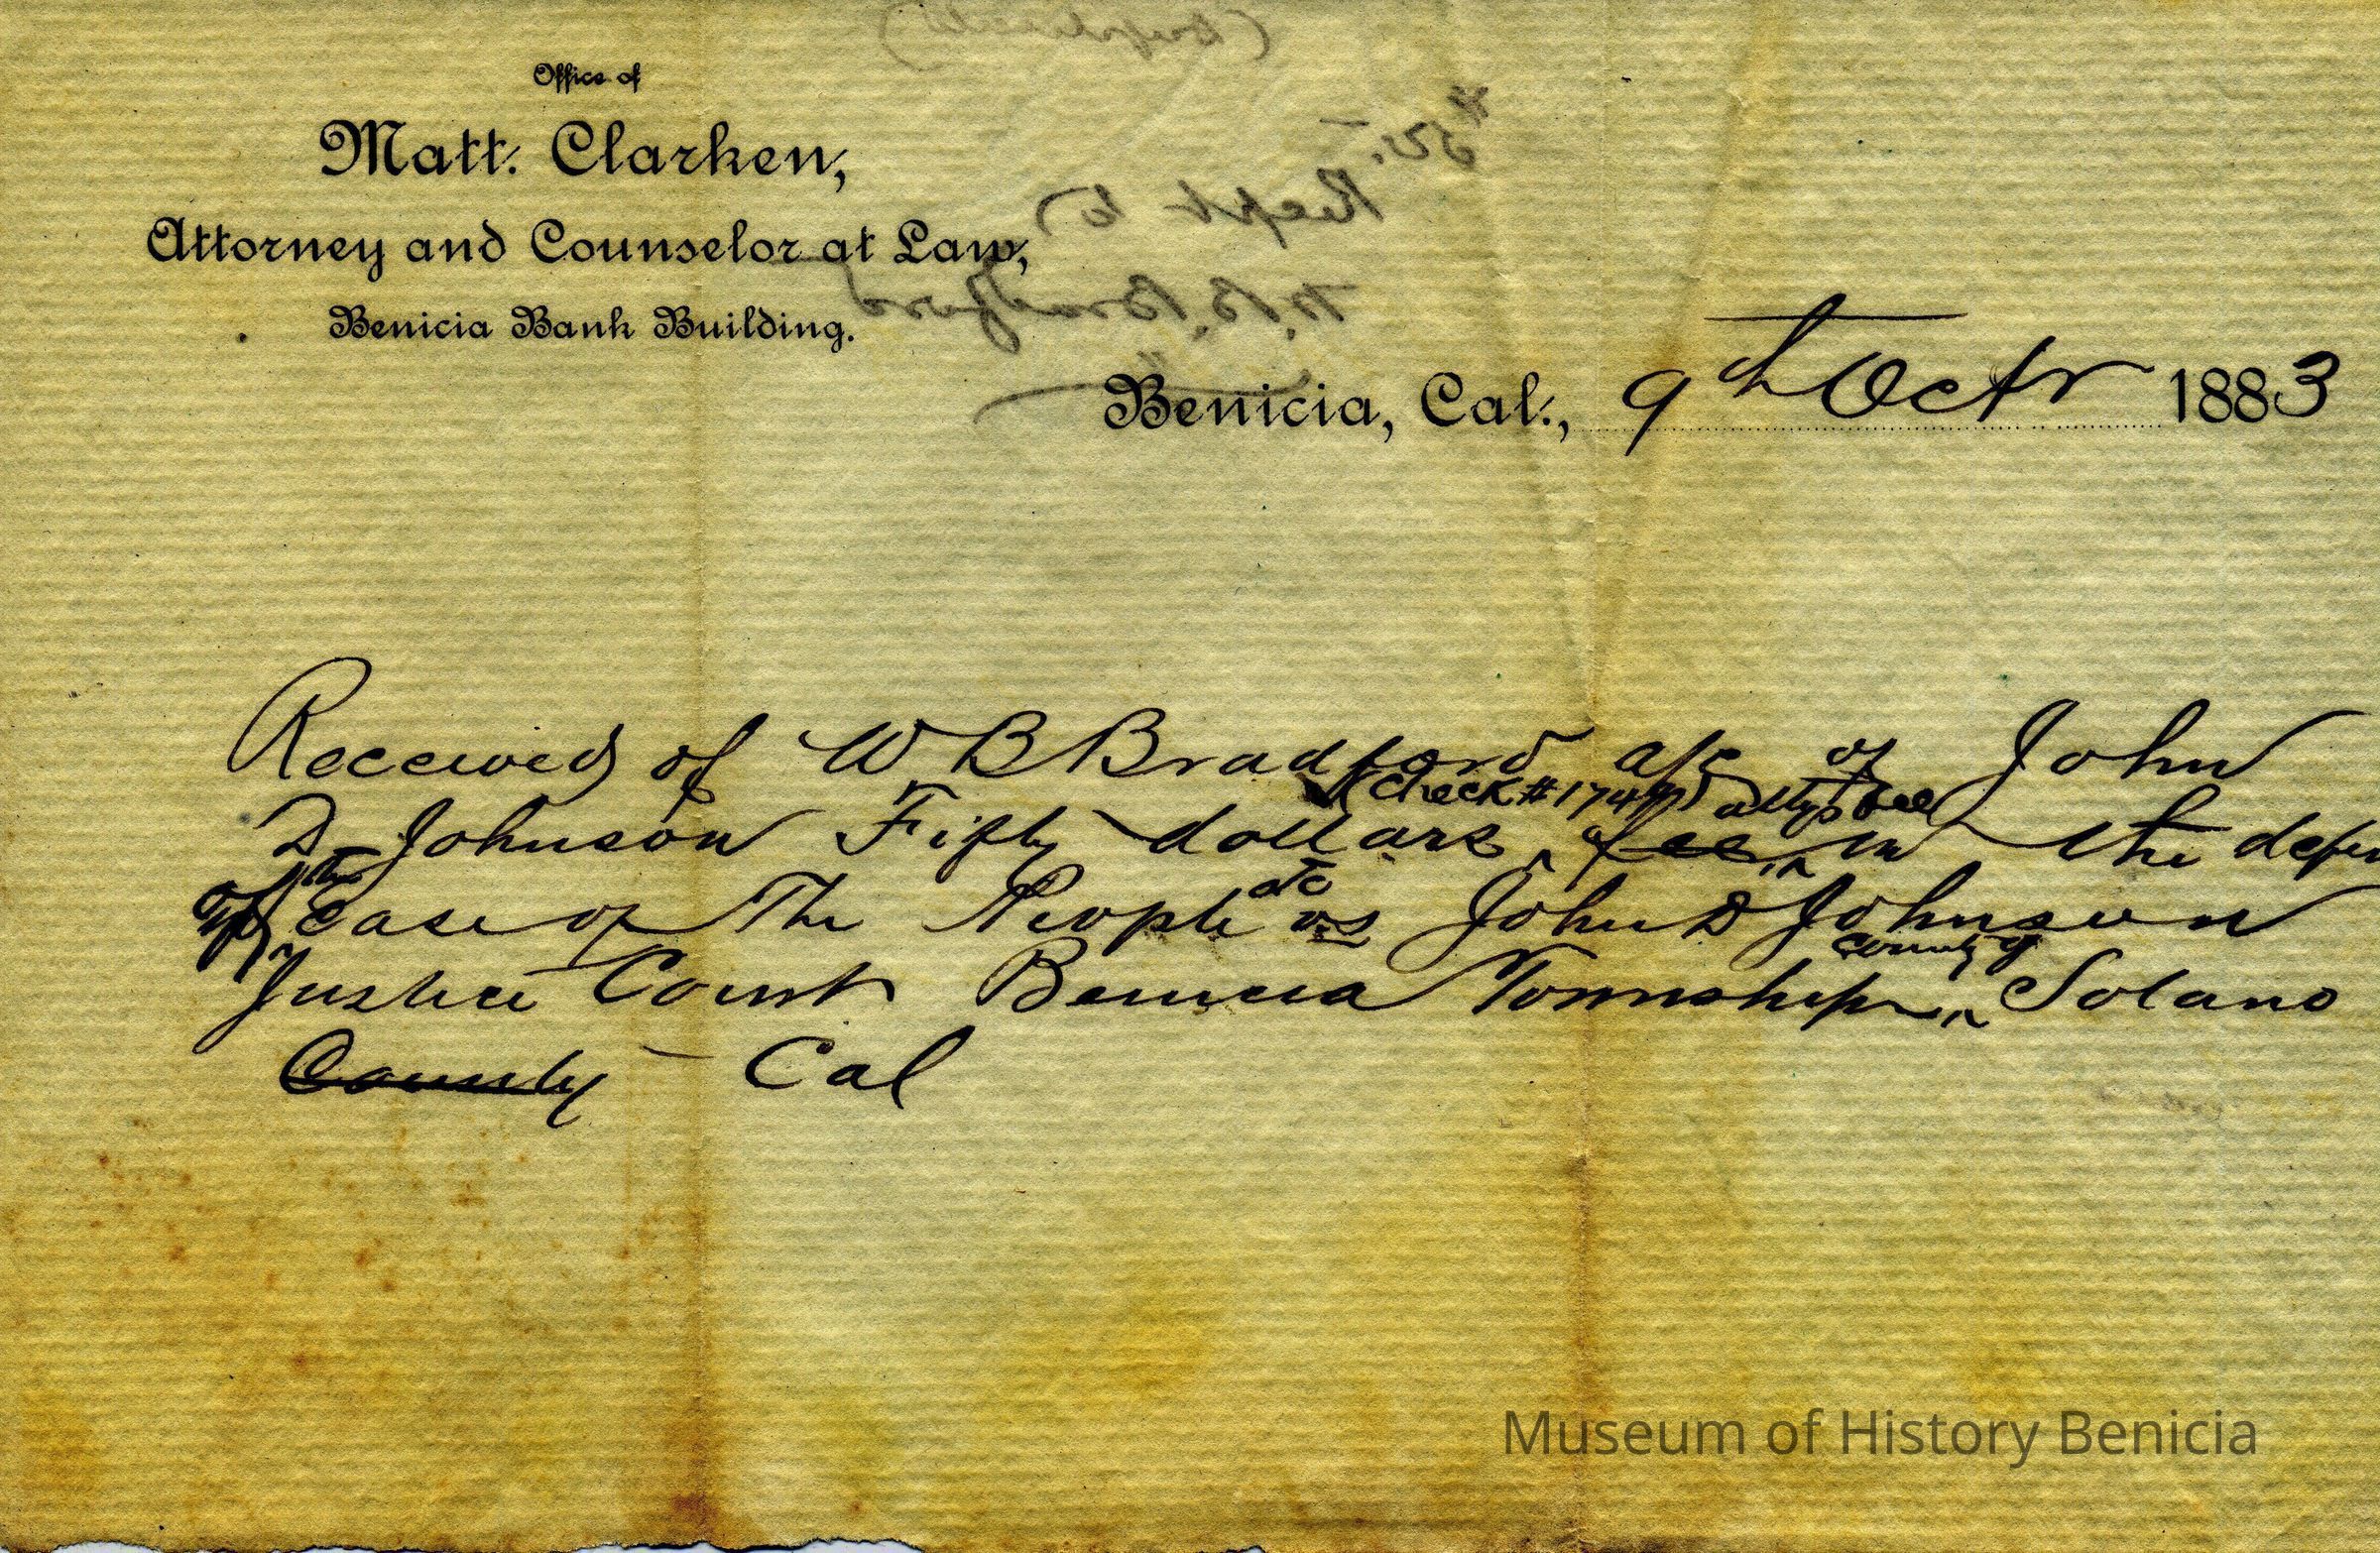 Office of
Matt. Clarken,
Attorney and Counselor at Law,
Benicia Bank Building.
(Duplicate)
$50.–
Recpt to
W. B. Bradford
Benicia, Cal., 9th Octr 1883
Received of W B Bradford a/c of John
(check # 174 attys fee
D Johnson Fifty dollars fee in the defen
of the case of The People etc vs John D Johnson
county of
Justice Court Benicia Township Solano
County Cal
Museum of History Benicia